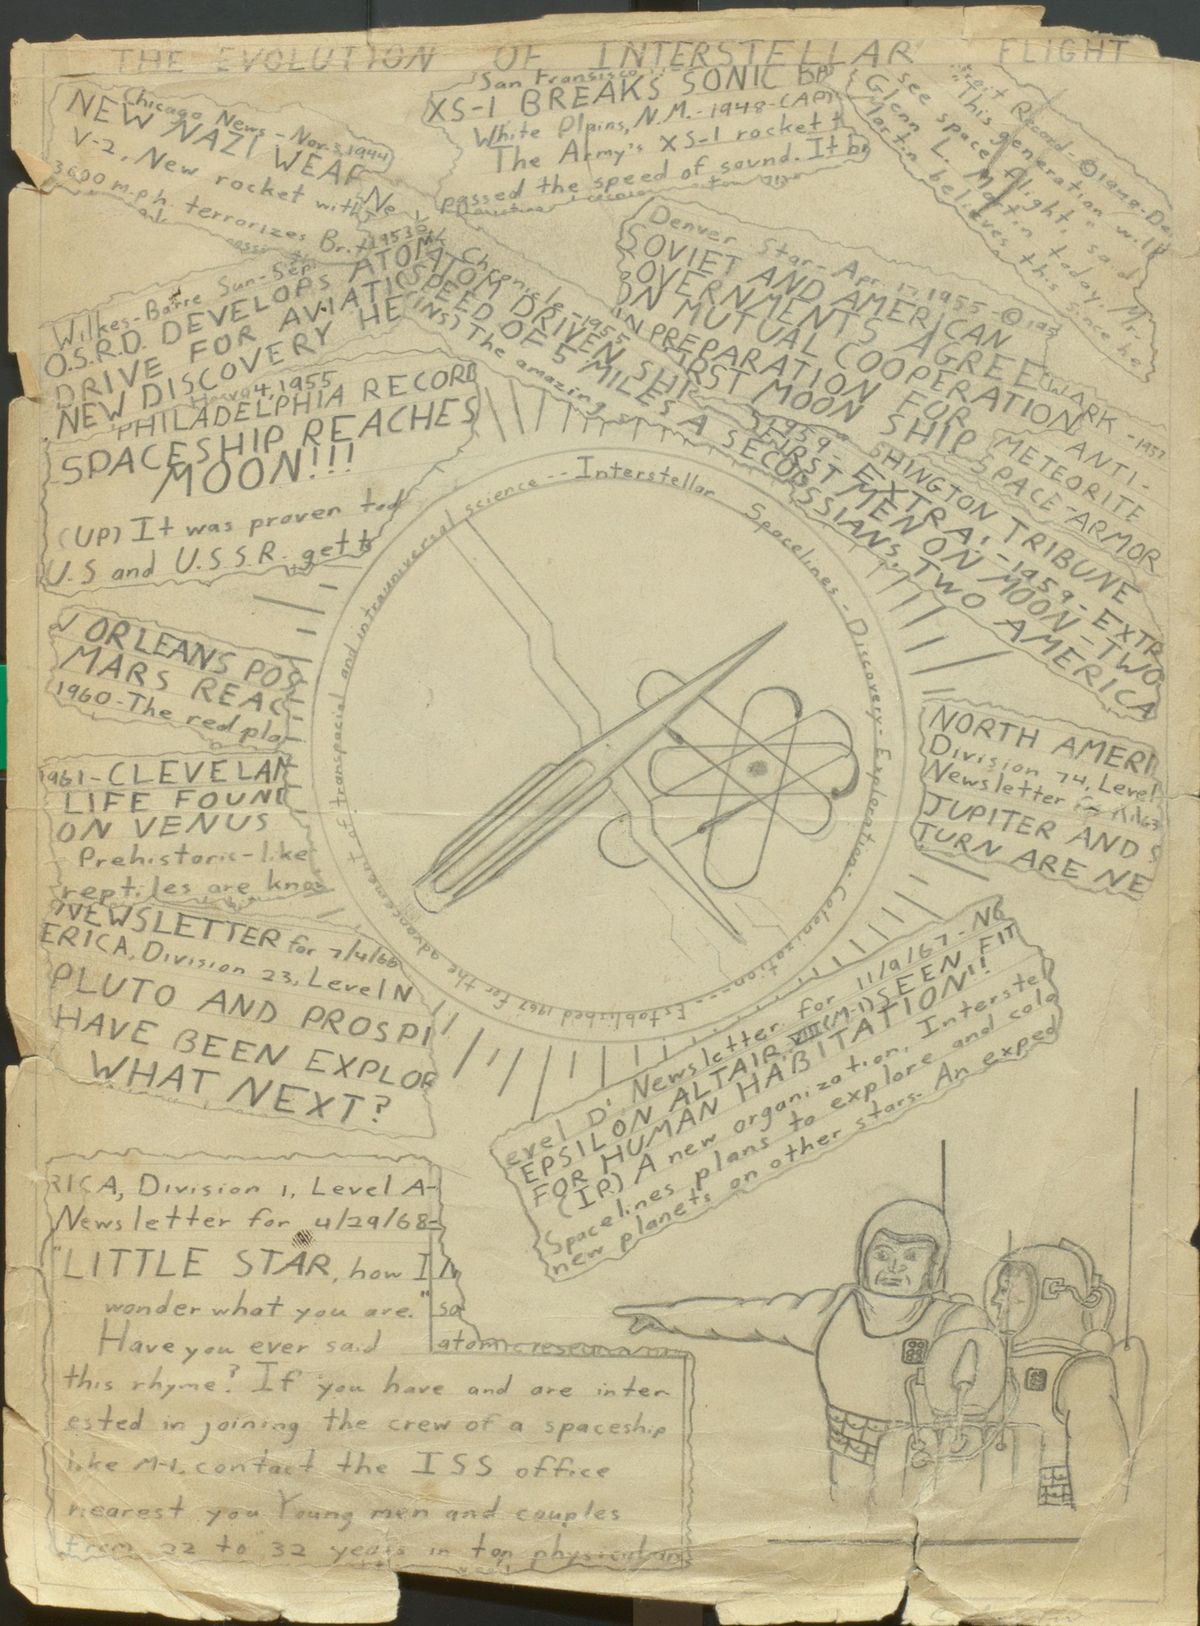 THE EVOLUTION OF INTERSTELLAR FLIGHT
Chicago News - Nov 3, 1944
NEW NAZI WEAP
V-2, New rocket with
3600 m.p.h. terrorizes Brit
San Fransisco
XS-1 BREAKS SONIC BA
White Plains, N.M. - 1948 - (AP)
The Army's XS-1 rocket
passed the speed of sound. It b
Record - Orange - De
"This generation will
see space flight," said
Glenn L. Martin today. Mr.
Martin believes this since he
Wilkes-Barre Sun - Sep. 1953
O.S.R.D. DEVELOPS ATOM
DRIVE FOR AVIATI
NEW DISCOVERY HE
Chronicle - 1955
ATOM DRIVEN SHI
SPEED OF 5 MILES A SECO
(INS) The amazing
Denver Star - Apr. 17, 1955 - © 195
SOVIET AND AMERICAN
GOVERNMENTS AGREE
ON MUTUAL COOPERATION
IN PREPARATION FOR
FIRST MOON SHIP
EWARK - 1957
ANTI-
METEORITE
SPACE-ARMOR
4, 1955
PHILADELPHIA RECORD
SPACESHIP REACHES
MOON!!!
(UP) It was proven tod
U.S and U.S.S.R. get t
SHINGTON TRIBUNE
1959 - EXTRA! - 1959 - EXTR
FIRST MEN ON MOON - TWO
SSIANS, TWO AMERICA
N ORLEANS POS
MARS REAC
1960 - The red pla
1961 - CLEVELAN
LIFE FOUN
ON VENUS
Prehistoric-like
reptiles are kno
NORTH AMERI
Division 74, Level
Newsletter
JUPITER AND S
TURN ARE NE
Interstellar Spacelines - Discovery - Exploration - Colonization --- Established 1967 for the advancement of transpacial and intrauniversal science --
NEWSLETTER for 7/4/66
ERICA, Division 23, Level N
PLUTO AND PROSPI
HAVE BEEN EXPLOR
WHAT NEXT?
evel D: Newsletter for 11/9/67 - NO
EPSILON ALTAIR VIII (M-1) SEEN FIT
FOR HUMAN HABITATION!!
(IP) A new organization, Interstel
Spacelines plans to explore and colo
new planets on other stars. An exped
RICA, Division 1, Level A-
Newsletter for 4/29/68-
"LITTLE STAR, how I
wonder what you are."
so
Have you ever said
atomic
this rhyme? If you have and are inter-
ested in joining the crew of a spaceship
like M-1, contact the ISS office
nearest you Young men and couples
from 22 to 32 years in top physical